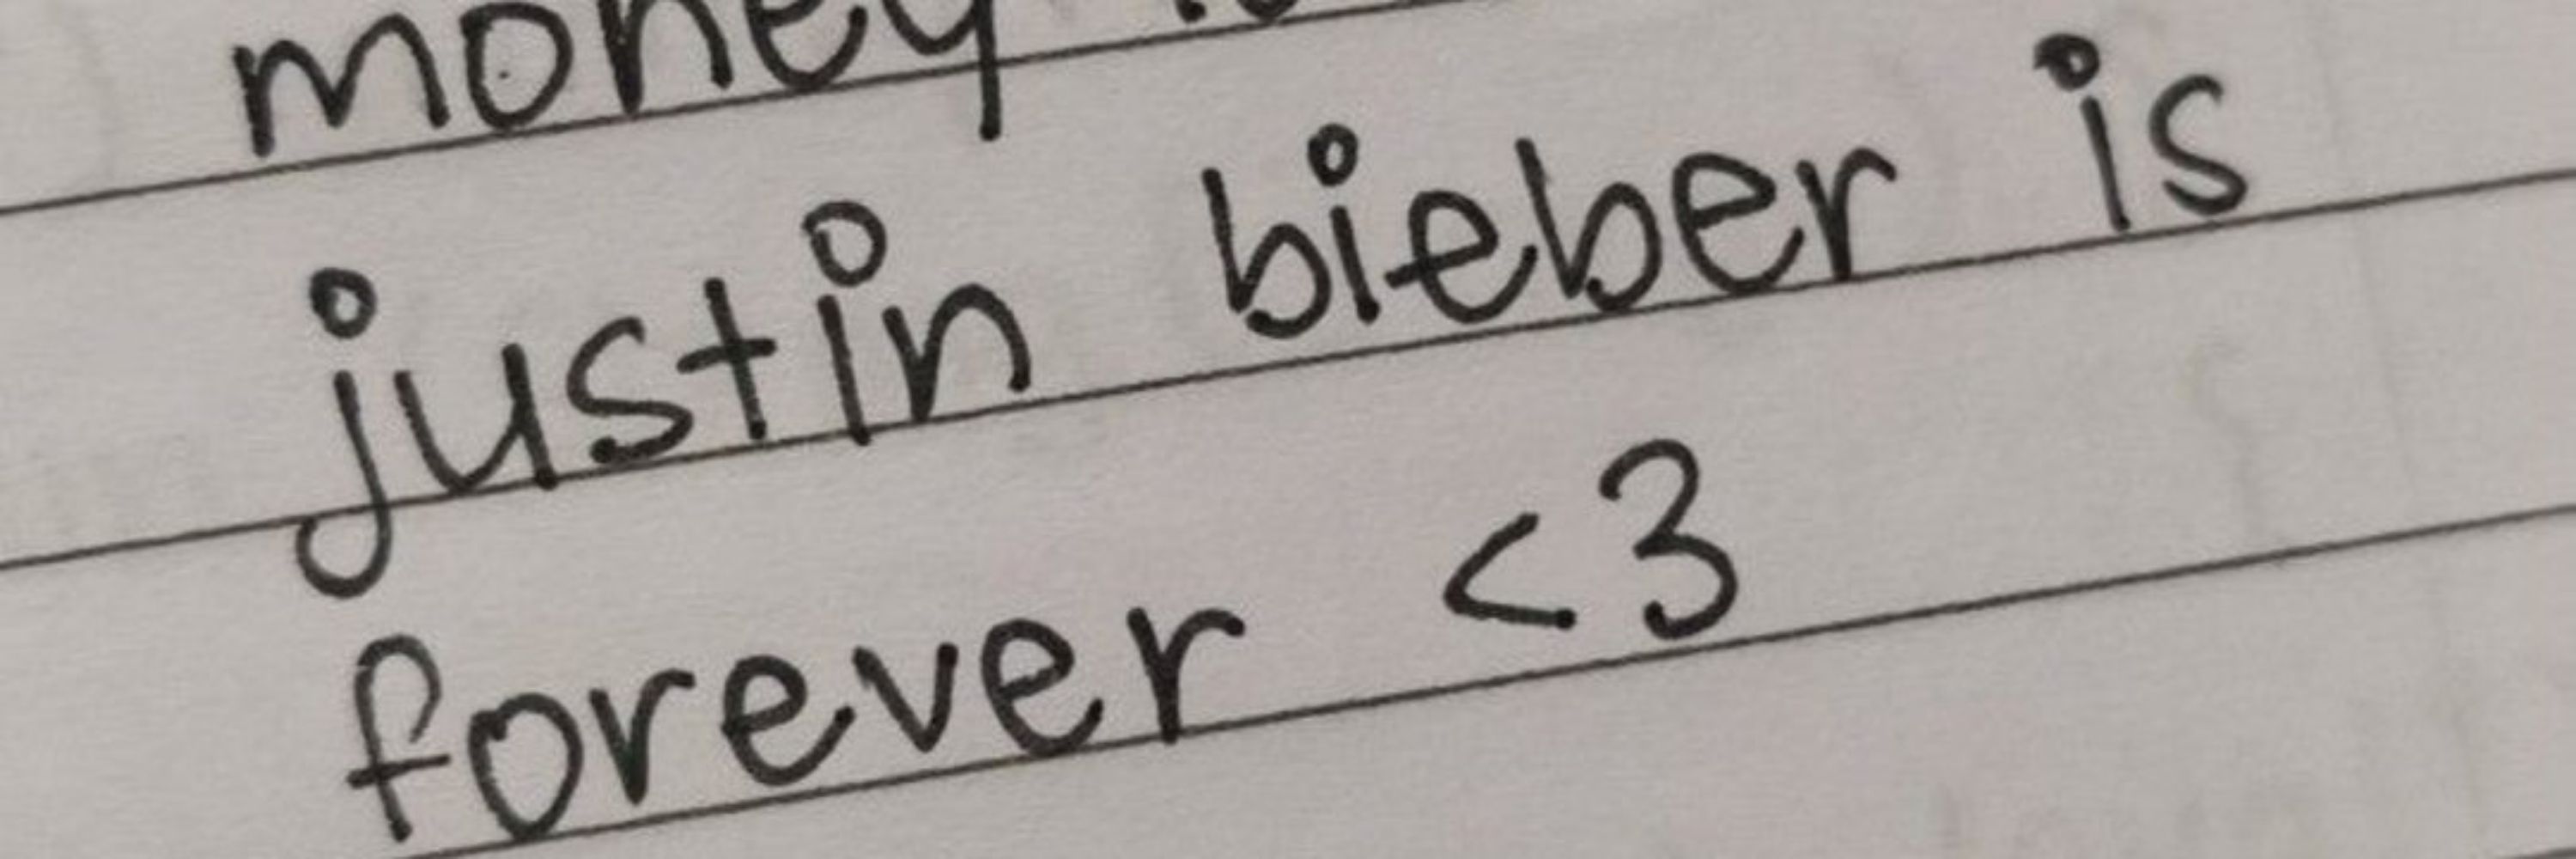 money
justin bieber is
forever <3